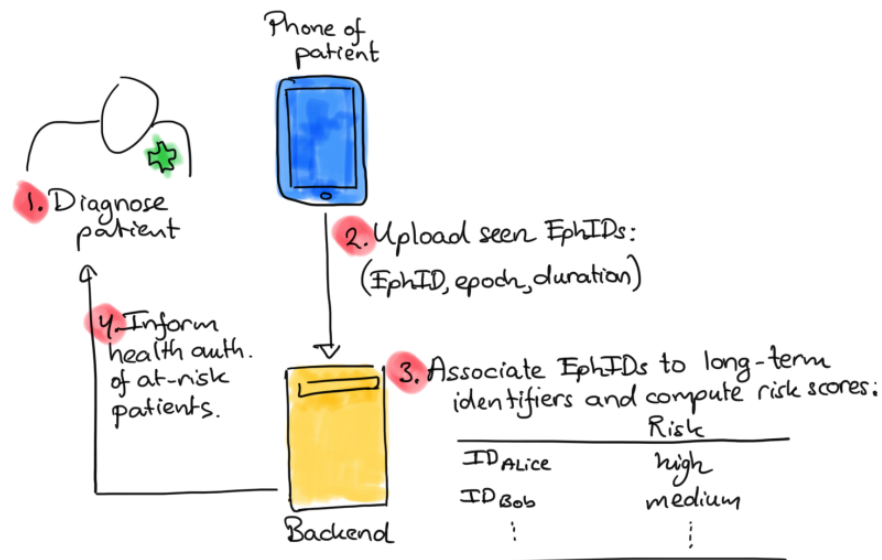 Phone of
patient
1. Diagnose
patient
2. Upload seen EphIDs:
(EphID, epoch, duration)
4. Inform
health auth.
of at-risk
patients.
3. Associate EphIDs to long-term
identifiers and compute risk scores:
Risk
ID Alice high
ID Bob medium
⋮ ⋮
Backend